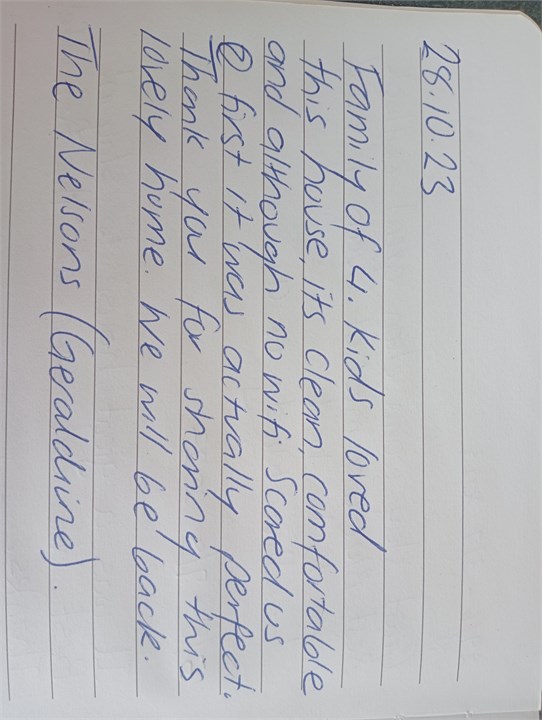 28.10.23
Family of 4. Kids loved
this house, its clean, comfortable
and although no wifi scared us
@ first it was actually perfect.
Thank you for sharing this
lovely home. We will be back.
The Nelsons (Geraldine).